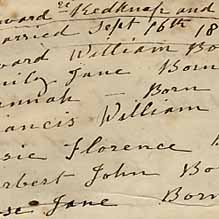 ward Redknap and
arried Sept 16th 18
ward William Bo
mily Jane Born
annah — Born
rancis William
sie Florence B
erbert John Bo
se Jane Born